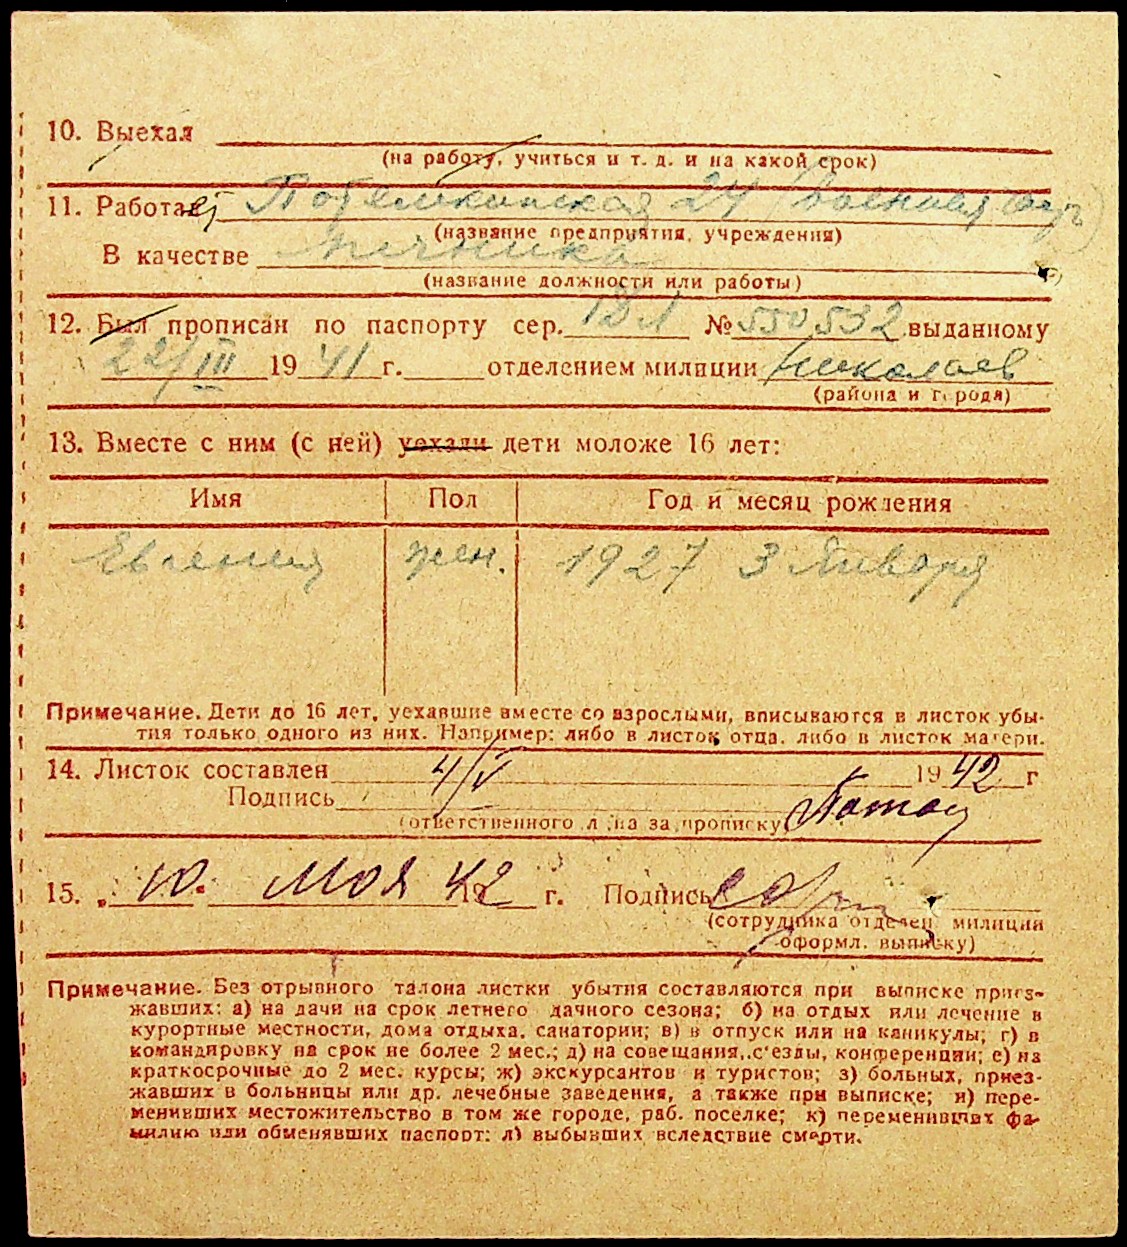 10. Выехал
(на работу, учиться и т. д. и на какой срок)
11. Работает Потемкинская 24 (военный
(название предприятия, учреждения)
В качестве печника
(название должности или работы)
12. Был прописан по паспорту сер. № 550532 выданному
22/III 1941 г. отделением милиции Николаев
(района и города)
13. Вместе с ним (с ней) уехали дети моложе 16 лет:
Имя Пол Год и месяц рождения
Евгения жен. 1927 3 Января
Примечание. Дети до 16 лет, уехавшие вместе со взрослыми, вписываются в листок убы-
тия только одного из них. Например: либо в листок отца, либо в листок матери.
14. Листок составлен 4/V 1942 г
Подпись
(ответственного лица за прописку)
15. „10. Мая 1942 г. Подпись
(сотрудника отделен. милиции
оформл. выписку)
Примечание. Без отрывного талона листки убытия составляются при выписке приез-
жавших: а) на дачи на срок летнего дачного сезона; б) на отдых или лечение в
курортные местности, дома отдыха, санатории; в) в отпуск или на каникулы; г) в
командировку на срок не более 2 мес.; д) на совещания, с'езды, конференции; е) на
краткосрочные до 2 мес. курсы; ж) экскурсантов и туристов; з) больных, приез-
жавших в больницы или др. лечебные заведения, а также при выписке; и) пере-
менивших местожительство в том же городе, раб. поселке; к) переменивших фа-
милию или обменявших паспорт; л) выбывших вследствие смерти.